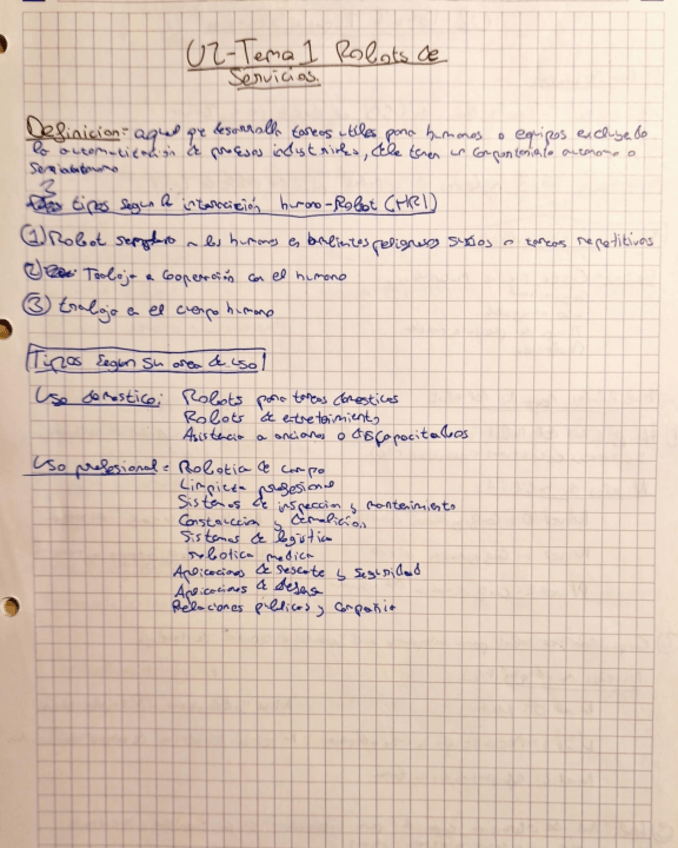 U2-Tema 1 Robots de
Servicios.
Definicion: aquel que desarrolla tareas utiles para humanos o equipos excluyendo
la automatización de procesos industriales, debe tener un comportamiento autonomo o
Semiautonomo
3
tipos segun la interacción humano-Robot (HRI)
① Robot a los humanos en peligrosos sucios o tareas repetitivas
② Trabaja en cooperación con el humano
③ trabajo en el cuerpo humano
Tipos segun su area de uso
Uso domestico: Robots para tareas domesticas
Robots de entretenimiento
Asistencia a ancianos o discapacitados
Uso profesional = Robotica de campo
Limpieza profesional
Sistemas de inspeccion y mantenimiento
Construccion y demolicion
Sistemas de logistica
robotica medica
Aplicaciones de rescate y seguridad
Aplicaciones de defensa
Relaciones publicas y compañia